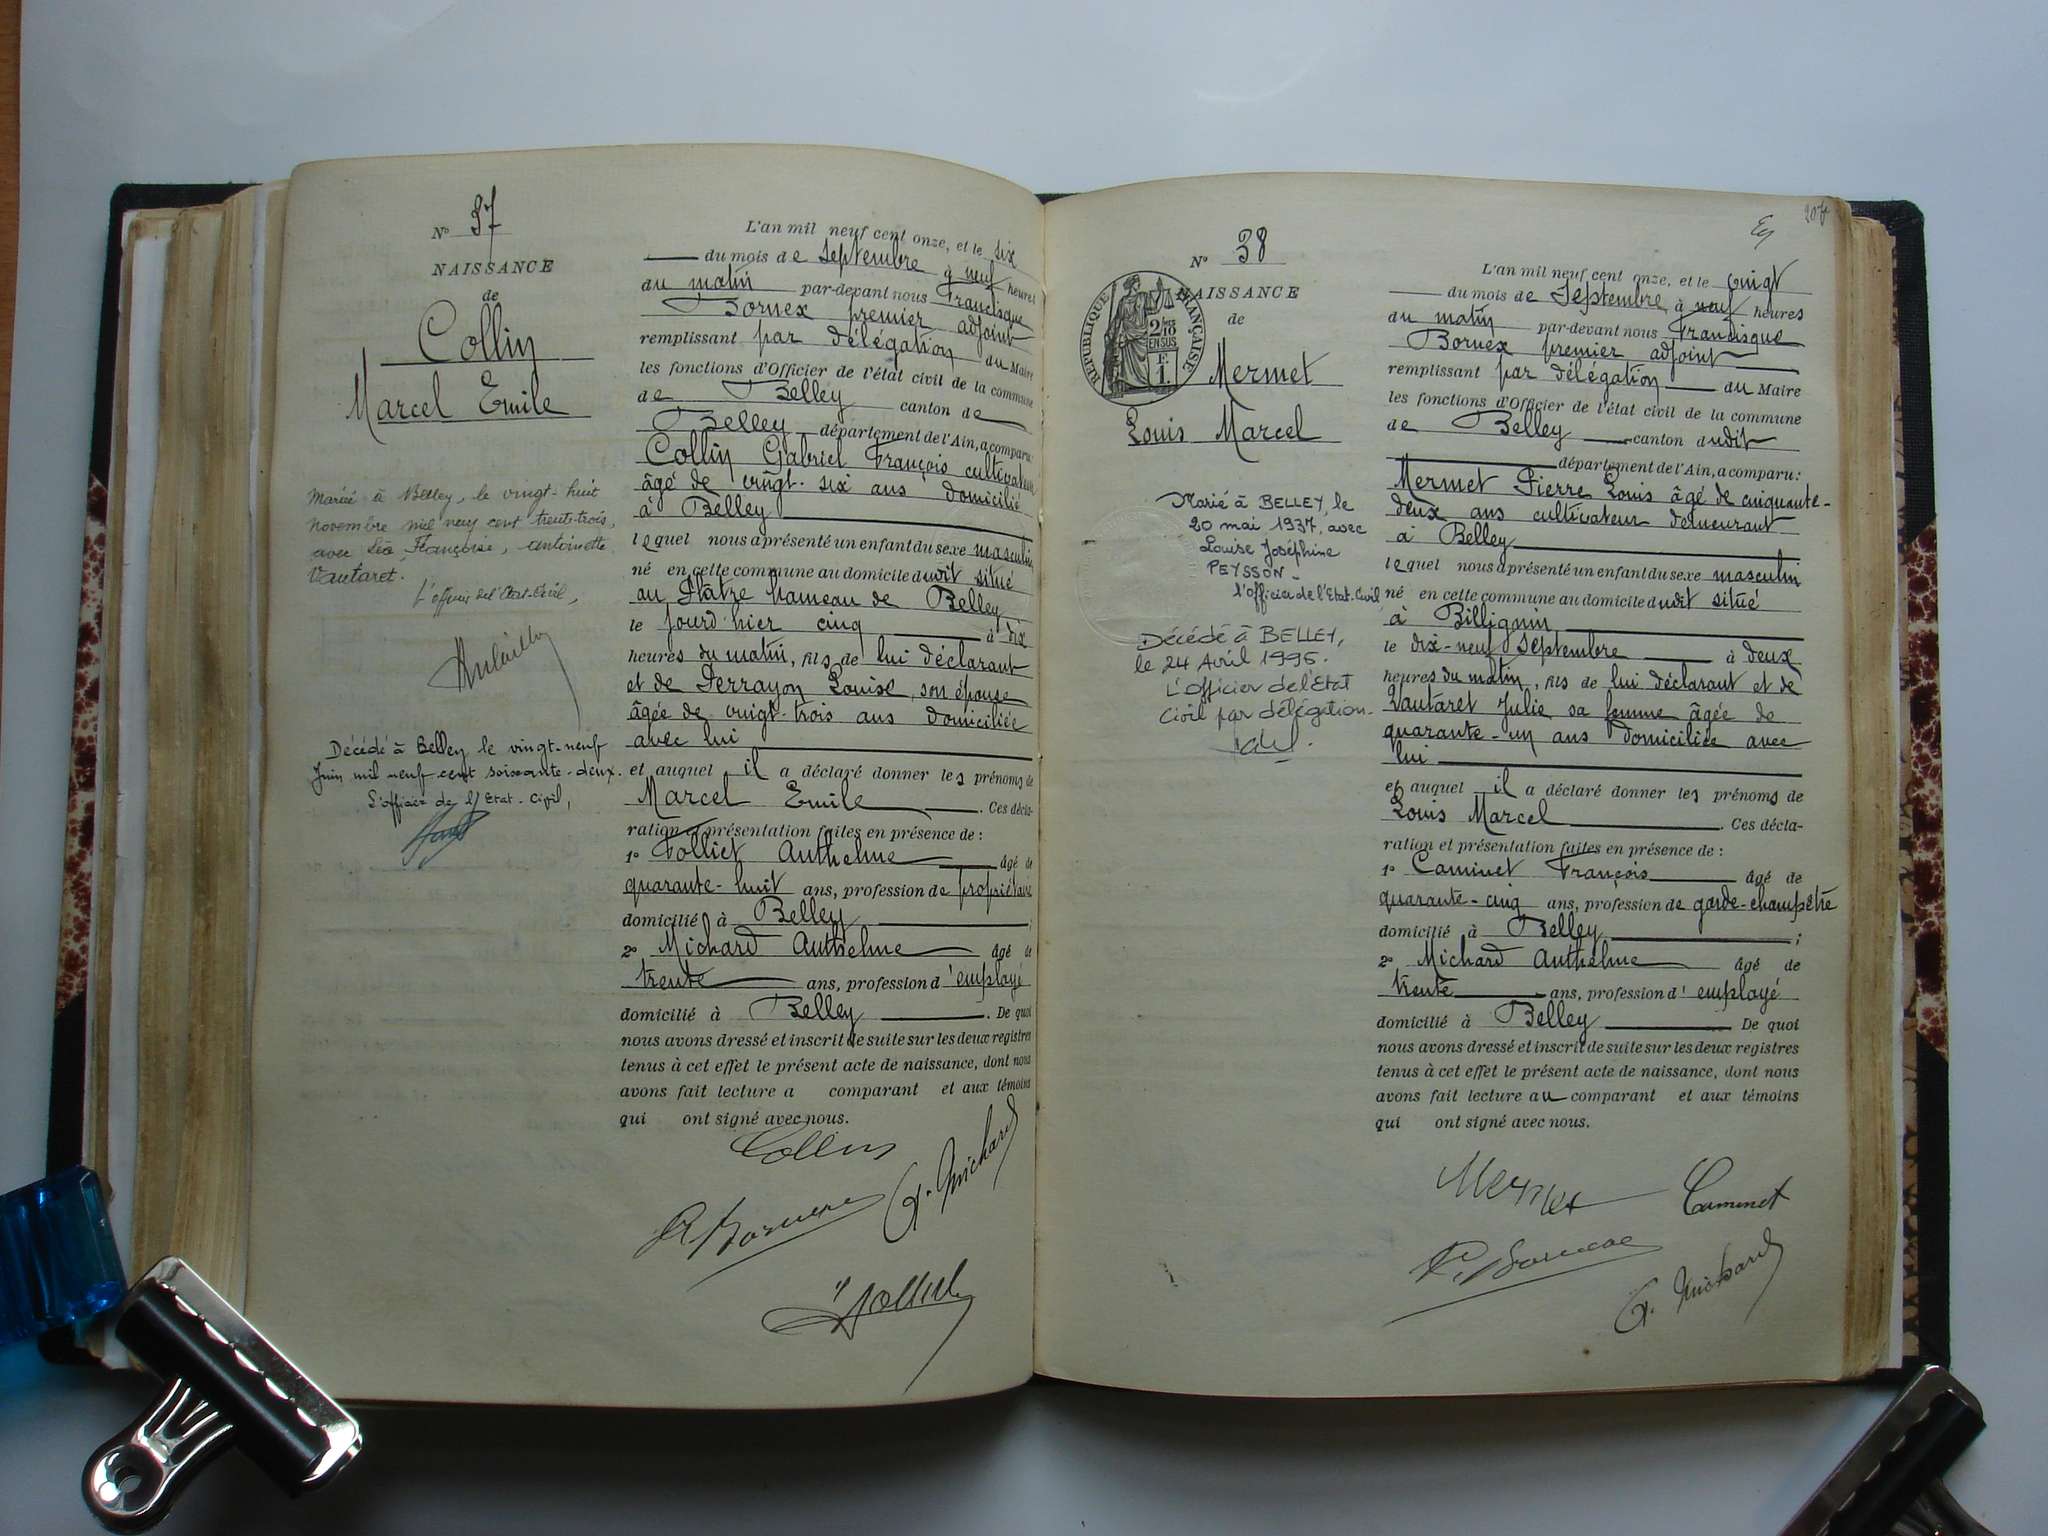 N° 37
NAISSANCE
de
Collin
Marcel Emile
Marié à Belley, le vingt-huit
novembre mil neuf cent trente-trois,
avec Léa, Françoise, Antoinette
Vautaret.
L'officier de l'Etat-Civil,
Décédé à Belley le vingt-neuf
Juin mil neuf cent soixante-deux.
L'officier de l'Etat-Civil,
L'an mil neuf cent onze, et le six
du mois de Septembre à neuf heures
du matin par-devant nous Francisque
Bornex premier adjoint
remplissant par délégation du Maire
les fonctions d'Officier de l'état civil de la commune
de Belley canton de
Belley département de l'Ain, a comparu:
Collin Gabriel François cultivateur
âgé de vingt-six ans domicilié
à Belley
lequel nous a présenté un enfant du sexe masculin
né en cette commune au domicile dudit situé
au hameau de Belley
le jourd'hier cinq à dix
heures du matin, fils de lui déclarant
et de Perrayon Louise, son épouse
âgée de vingt-trois ans domiciliée
avec lui
et auquel il a déclaré donner les prénoms de
Marcel Emile. Ces décla-
ration et présentation faites en présence de:
1° Folliet Anthelme âgé de
quarante-huit ans, profession de propriétaire
domicilié à Belley;
2° Michard Anthelme âgé de
trente ans, profession d'employé
domicilié à Belley. De quoi
nous avons dressé et inscrit de suite sur les deux registres
tenus à cet effet le présent acte de naissance, dont nous
avons fait lecture a comparant et aux témoins
qui ont signé avec nous.
Collin
G. Michard
207
N° 38
NAISSANCE
RÉPUBLIQUE FRANÇAISE
2/10 EN SUS
F. 1.
de
Mermet
Louis Marcel
Marié à BELLEY, le
20 mai 1937, avec
Louise Joséphine
PEYSSON.
l'officier de l'Etat-Civil,
Décédé à BELLEY,
le 24 Avril 1996.
L'Officier de l'Etat
Civil par délégation.
L'an mil neuf cent onze, et le vingt
du mois de Septembre à neuf heures
du matin par-devant nous Francisque
Bornex premier adjoint
remplissant par délégation du Maire
les fonctions d'Officier de l'état civil de la commune
de Belley canton dudit
département de l'Ain, a comparu:
Mermet Pierre Louis âgé de cinquante-
deux ans cultivateur demeurant
à Belley
lequel nous a présenté un enfant du sexe masculin
né en cette commune au domicile dudit situé
à Billignin
le dix-neuf Septembre à deux
heures du matin, fils de lui déclarant et de
Vautaret Julie sa femme âgée de
quarante-un ans domiciliée avec
lui
et auquel il a déclaré donner les prénoms de
Louis Marcel. Ces décla-
ration et présentation faites en présence de:
1° Caminet François âgé de
quarante-cinq ans, profession de garde-champêtre
domicilié à Belley;
2° Michard Anthelme âgé de
trente ans, profession d'employé
domicilié à Belley De quoi
nous avons dressé et inscrit de suite sur les deux registres
tenus à cet effet le présent acte de naissance, dont nous
avons fait lecture au comparant et aux témoins
qui ont signé avec nous.
Mermet Caminet
G. Michard